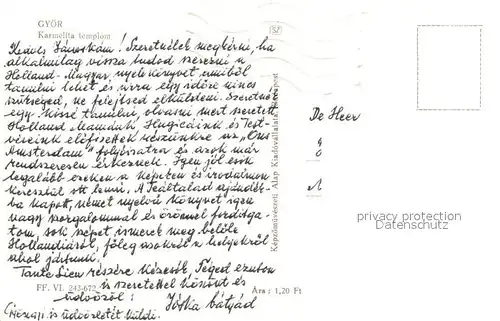 GYŐR
Karmelita templom
Kedves Jánoskám! Szeretnélek megkérni, ha
alkalmilag vissza tudod szerezni a
Holland-Magyar nyelvkönyvet amiből
tanulni lehet és arra egy időre nincs
szükséged, ne felejtsed elküldeni. Szeretnék
egy kissé tanulni, olvasni mert szeretett
Holland Mamánk, Hugicáink és Test-
véreink előfizettek részünkre az "Ons
Amsterdam" folyóiratra és azok már
rendszeresen érkeznek. Igen jól esik
legalább ezeken a képeken és irodalmon
keresztül ott lenni. A Teáltalad ajándék-
ba kapott, német nyelvű könyvet igen
nagy szorgalommal és örömmel fordítga-
tom, sok szépet ismerek meg belőle
Hollandiáról, főleg azokról a helyekről
ahol jártunk.
Tante Sien részére kézcsók, Téged ezuton
is szeretettel köszönt és
üdvözöl: Jóska bátyád
FF. VI. 243-672
Ára: 1,20 Ft
is üdvözletét küldi.
SZ
Képzőművészeti Alap Kiadóvállalata, Budapest
De Heer
privacy protection
Datenschutz